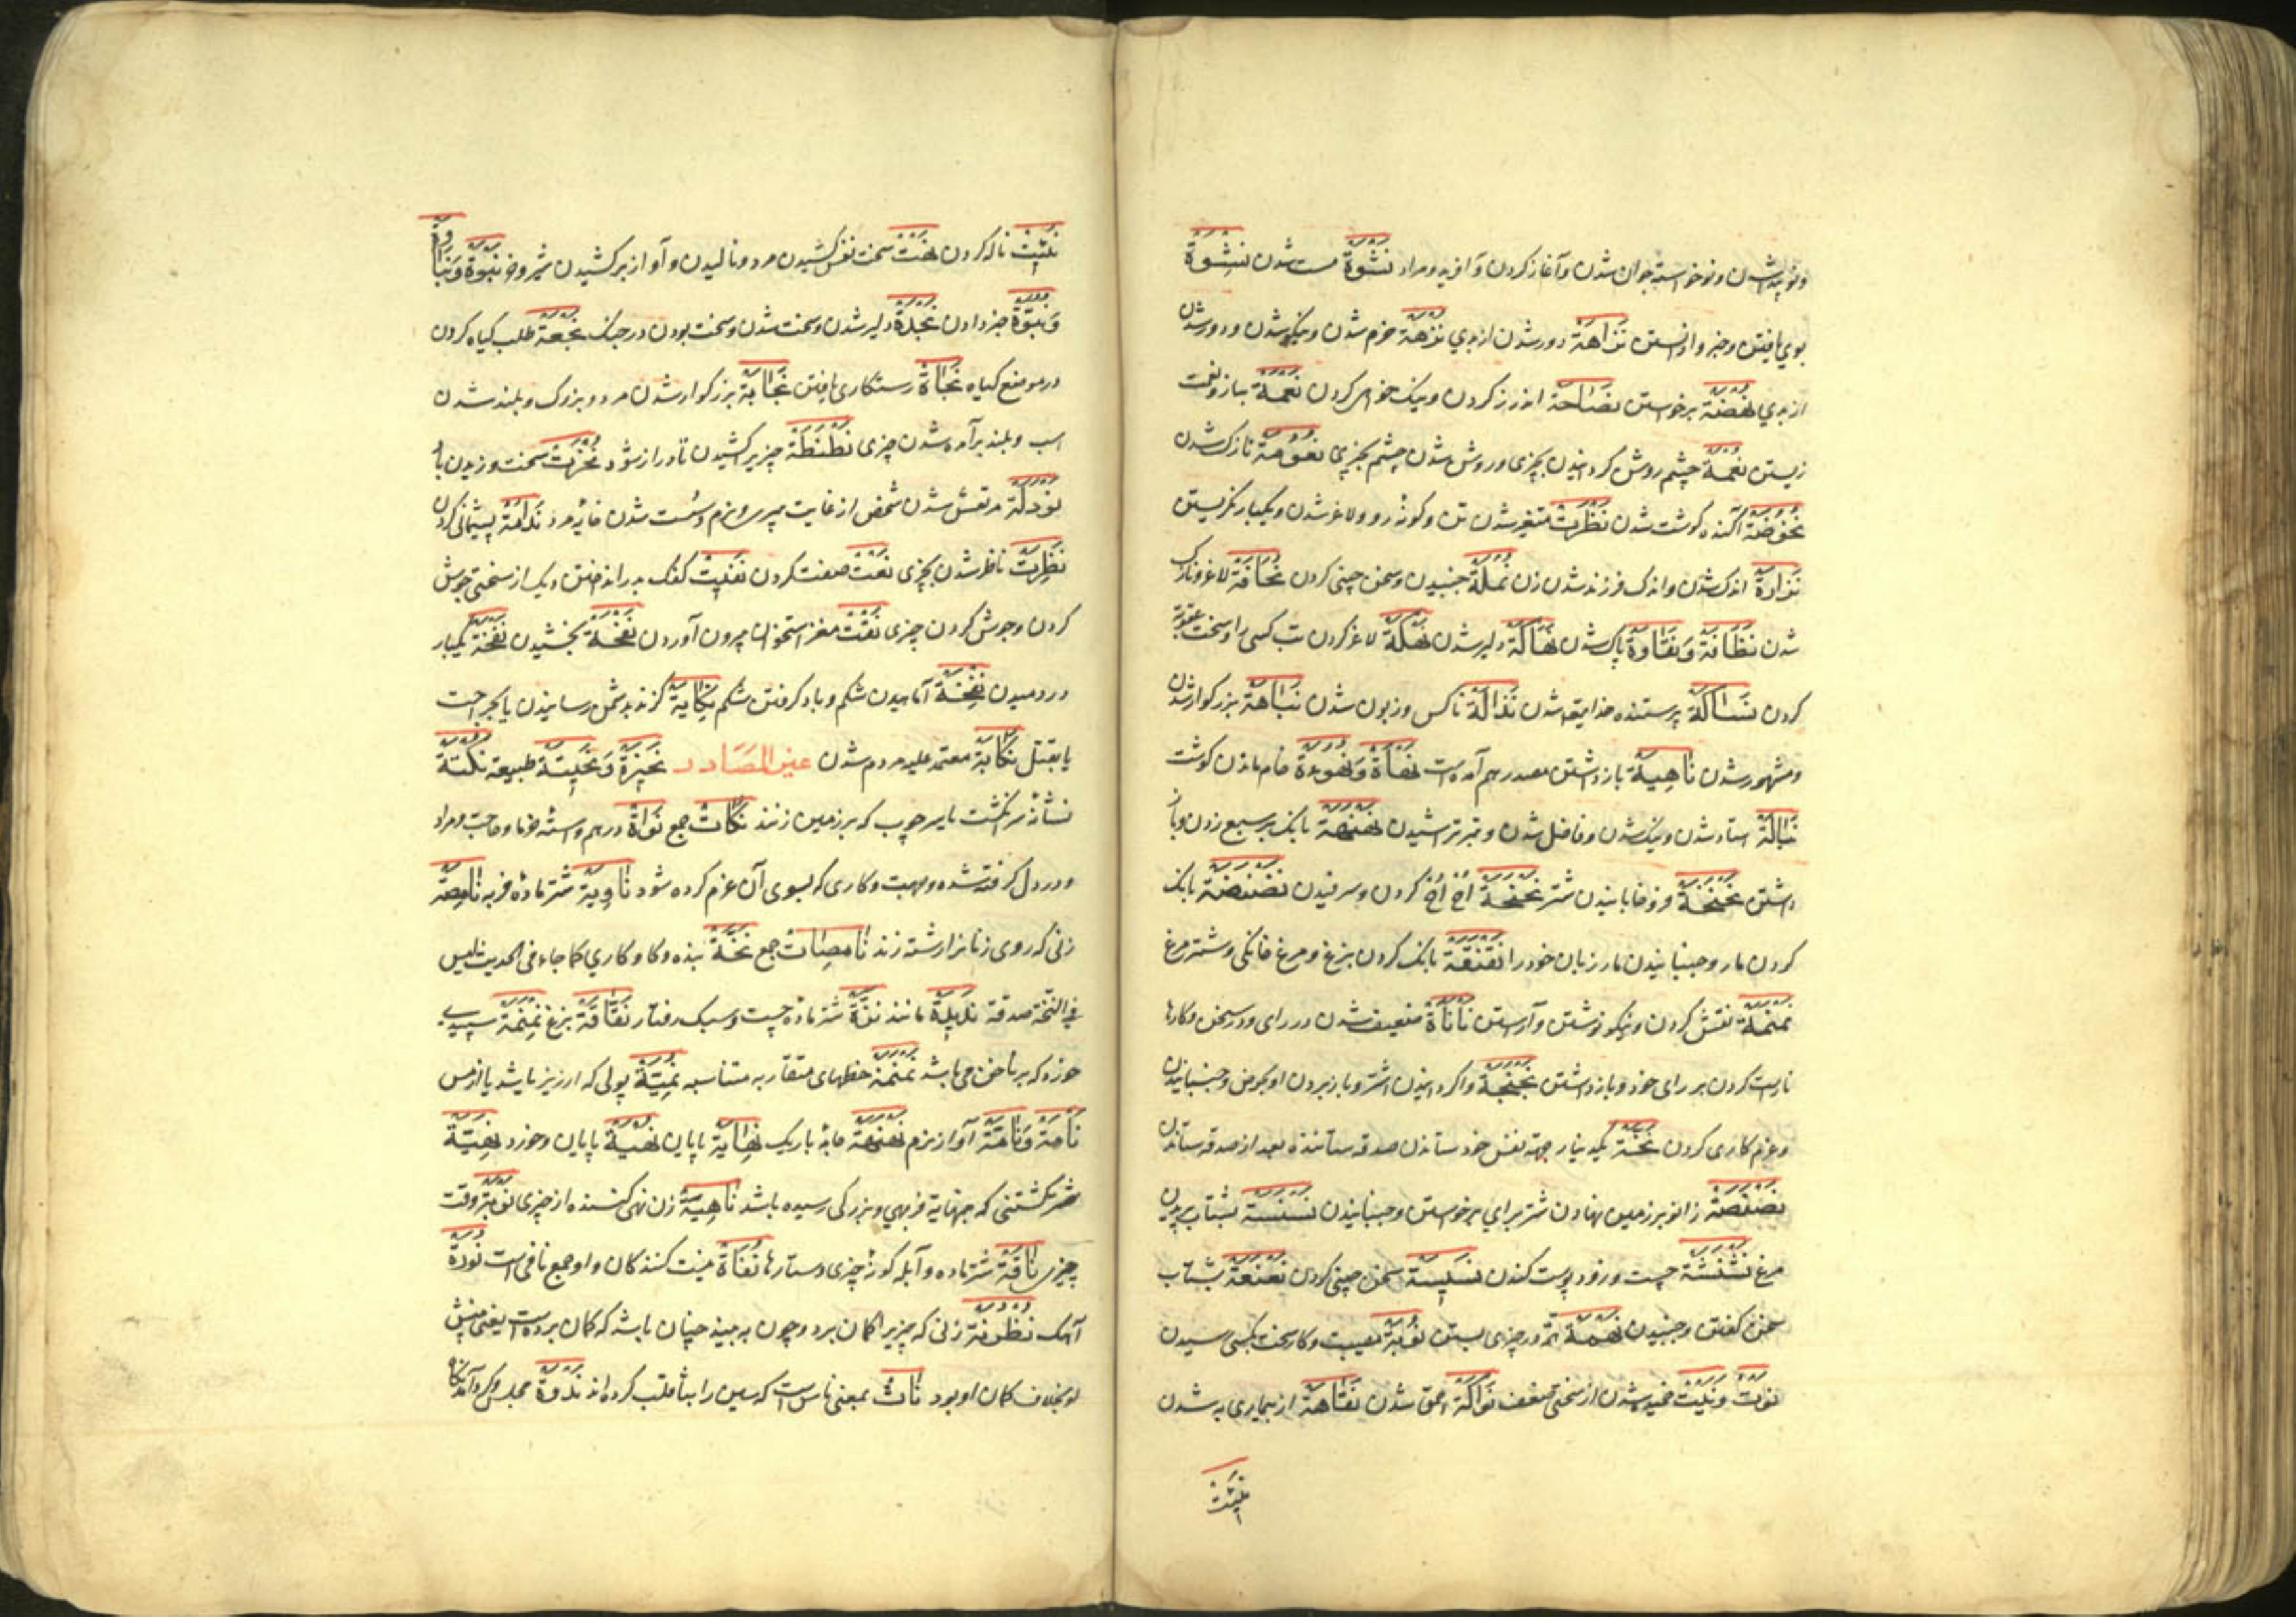 ونو پیدا شدن ونوخواسته جوان شدن وآغاز کردن وآفریدن ومراد نَشْوَة مست شدن نِشْوَة
بوی یافتن وخبر وا دانستن نَزَاهَة دور شدن از بدی نُزْهَة خرم شدن ونیکو شدن ودور شدن
از بدی نَهْضَة برخواستن نَصَاحَة اندرز کردن ونیک خواهی کردن نَعْمَة بناز ونعمت
زیستن نُعْمَة چشم روشن کردانیدن بچیزی وروشن شدن چشم بچیزی نُعُومَة نازک شدن
نُحُوضَة آکنده کوشت شدن نَظْرَت متغیر شدن تن وکونهٔ رو ولاغر شدن ویکبار نکریستن
نَزَارَة اندک شدن واندک فرزند شدن زن نَمْلَة جنبیدن وسخن چینی کردن نَحَافَة لاغر ونازک
شدن نَظَافَة وَنَقَاوَة پاک شدن نَهَاكَة دلیر شدن نَهْكَة لاغر کردن تب کسی را وسخت عقوبة
کردن نَسَاكَة پرستنده خدایتعا شدن نَذَالَة ناکس وزبون شدن نَبَاهَة بزرکوار شدن
ومشهور شدن نَاهِيَة بازداشتن مصدر هم آمده است نَهَاءَة وَنُهُوءَة خام ماندن کوشت
نَبَالَة استاد شدن ونیک شدن وفاضل شدن وتیر تراشیدن نَهْنَهَة بانک بر سبع زدن وباز
داشتن نَخْنَخَة فروخابانیدن شتر نَحْنَحَة اخ اخ کردن وسرفیدن نَضْنَضَة بانک
کردن مار وجنبانیدن مار زبان خود را نَقْنَقَة بانک کردن بزغ ومرغ خانکی وشتر مرغ
نَمْنَمَة نقش کردن ونیکو نوشتن وآراستن نَأْنَأَة ضعیف شدن در رای ودر سخن وکارها
ناراست کردن بر رای خود وبازداشتن نَجْنَجَة واکردانیدن اشتر وباز بردن او بحوض وجنبانیدن
وعزم کاری کردن نَخَّة یکدینار جهة نفس خود ستاندن صدقه ستاننده بعد از صدقه ستاندن
نَصْنَصَة زانو بر زمین نهادن شتر برای برخواستن وجنبانیدن نَسْنَسَة بشتاب پریدن
مرغ نَشْنَشَة چست وزود پوست کندن نَسِيسَة سخن چینی کردن نَعْنَعَة بشتاب
سخن کفتن وجنبیدن نَهْمَة در چیزی بستن نَوْبَة مصیبت وکار سخت بکسی رسیدن
نَوْت وَنَيْت خمیده شدن از سختی ضعف نَوَاكَة احمق شدن نَقَاهَة از بیماری به شدن
نَئِيت
نَئِيت ناله کردن نَهْت سخت نفس کشیدن مرد ونالیدن وآواز برکشیدن شیر وخر نُبُوَّة وَنَبَاوَة
وَنُبُوَّة خبر دادن نَجْدَة دلیر شدن وسخت شدن وسخت بودن در جنک نُجْعَة طلب کیاه کردن
در موضع کیاه نَجَاة رستکاری یافتن نَجَابَة بزرکوار شدن مرد وبزرک وبلند شدن
اسب وبلند برآمده شدن چیزی نَطْنَطَة چیزی را کشیدن تا دراز شود سخت وزیدن باد
نَوْدَلَة مرتعش شدن شخص از غایت پیری ونرم وسست شدن خایه مرد نَدَامَة پشیمانی کردن
نَظْرَت ناظر شدن بچیزی نَعْت صفت کردن نَفِيت کفک بدر انداختن دیک از سختی جوش
کردن وجوش کردن چیزی نَقْت مغز استخوان بیرون آوردن نِحْلَة بخشیدن نَفْخَة یکبار
در دمیدن نُفْخَة آماهیدن شکم وباد کرفتن شکم نِكَايَة کزند بدشمن رسانیدن یا بجراحت
یا بقتل نِكَابَة معتمد علیه مردم شدن غیر المصَادر نَحِيزَة وَنَحِيتَة طبیعة نُكْتَة
نشانهٔ سر انکشت یا سر چوب که بر زمین زنند نُكَات جمع نَوَاة درهم واستهٔ خرما وحاجت ومراد
ودر دل کرفته شده ومهمت وکاری که بسوی آن عزم کرده شود نَاوِيَة شتر مادهٔ فربه نَامِصَة
زنی که روی زنانرا رشته زند نَامِصَات جمع نَخَّة بنده وکاو کاری کما جاء فی الحدیث لیس
فی النخة صدقة نَدِيدَة مانند شتر ماده چست وسبک رفتار نَقَّاقَة بزغ نِمْنِمَة سپیدی
خورد که بر ناخن می باشد نَمْنَمَة خطهای متقاربه متناسبه نُمِّيَّة پولی که ارزیز باشد یا از مس
نَامَة وَنَأْمَة آواز نرم نَهْنَهَة جامهٔ باریک نِهَايَة پایان نُهْيَة پایان وخرد نَهِيَّة
شتر کشتنی که بنهایة فربهی وبزرکی رسیده باشد نَاهِيَة زن نهی کننده از چیزی نَوْبَة وقت
چیزی نَاقَة شتر ماده وآبلهٔ کونهٔ چیزی وستارها نُفَاة نیست کنندکان واو جمع نافی است نُورَة
آهک نَظُونَة زنی که چیزی را کمان برد وچون به بیند چنان باشد که کمان برده است یعنی نیش
او بخلاف کمان او بود نَات بمعنی ناس است که سین را بتا قلب کرده اند نَدْوَة مجلس وکرد آمدنکاه